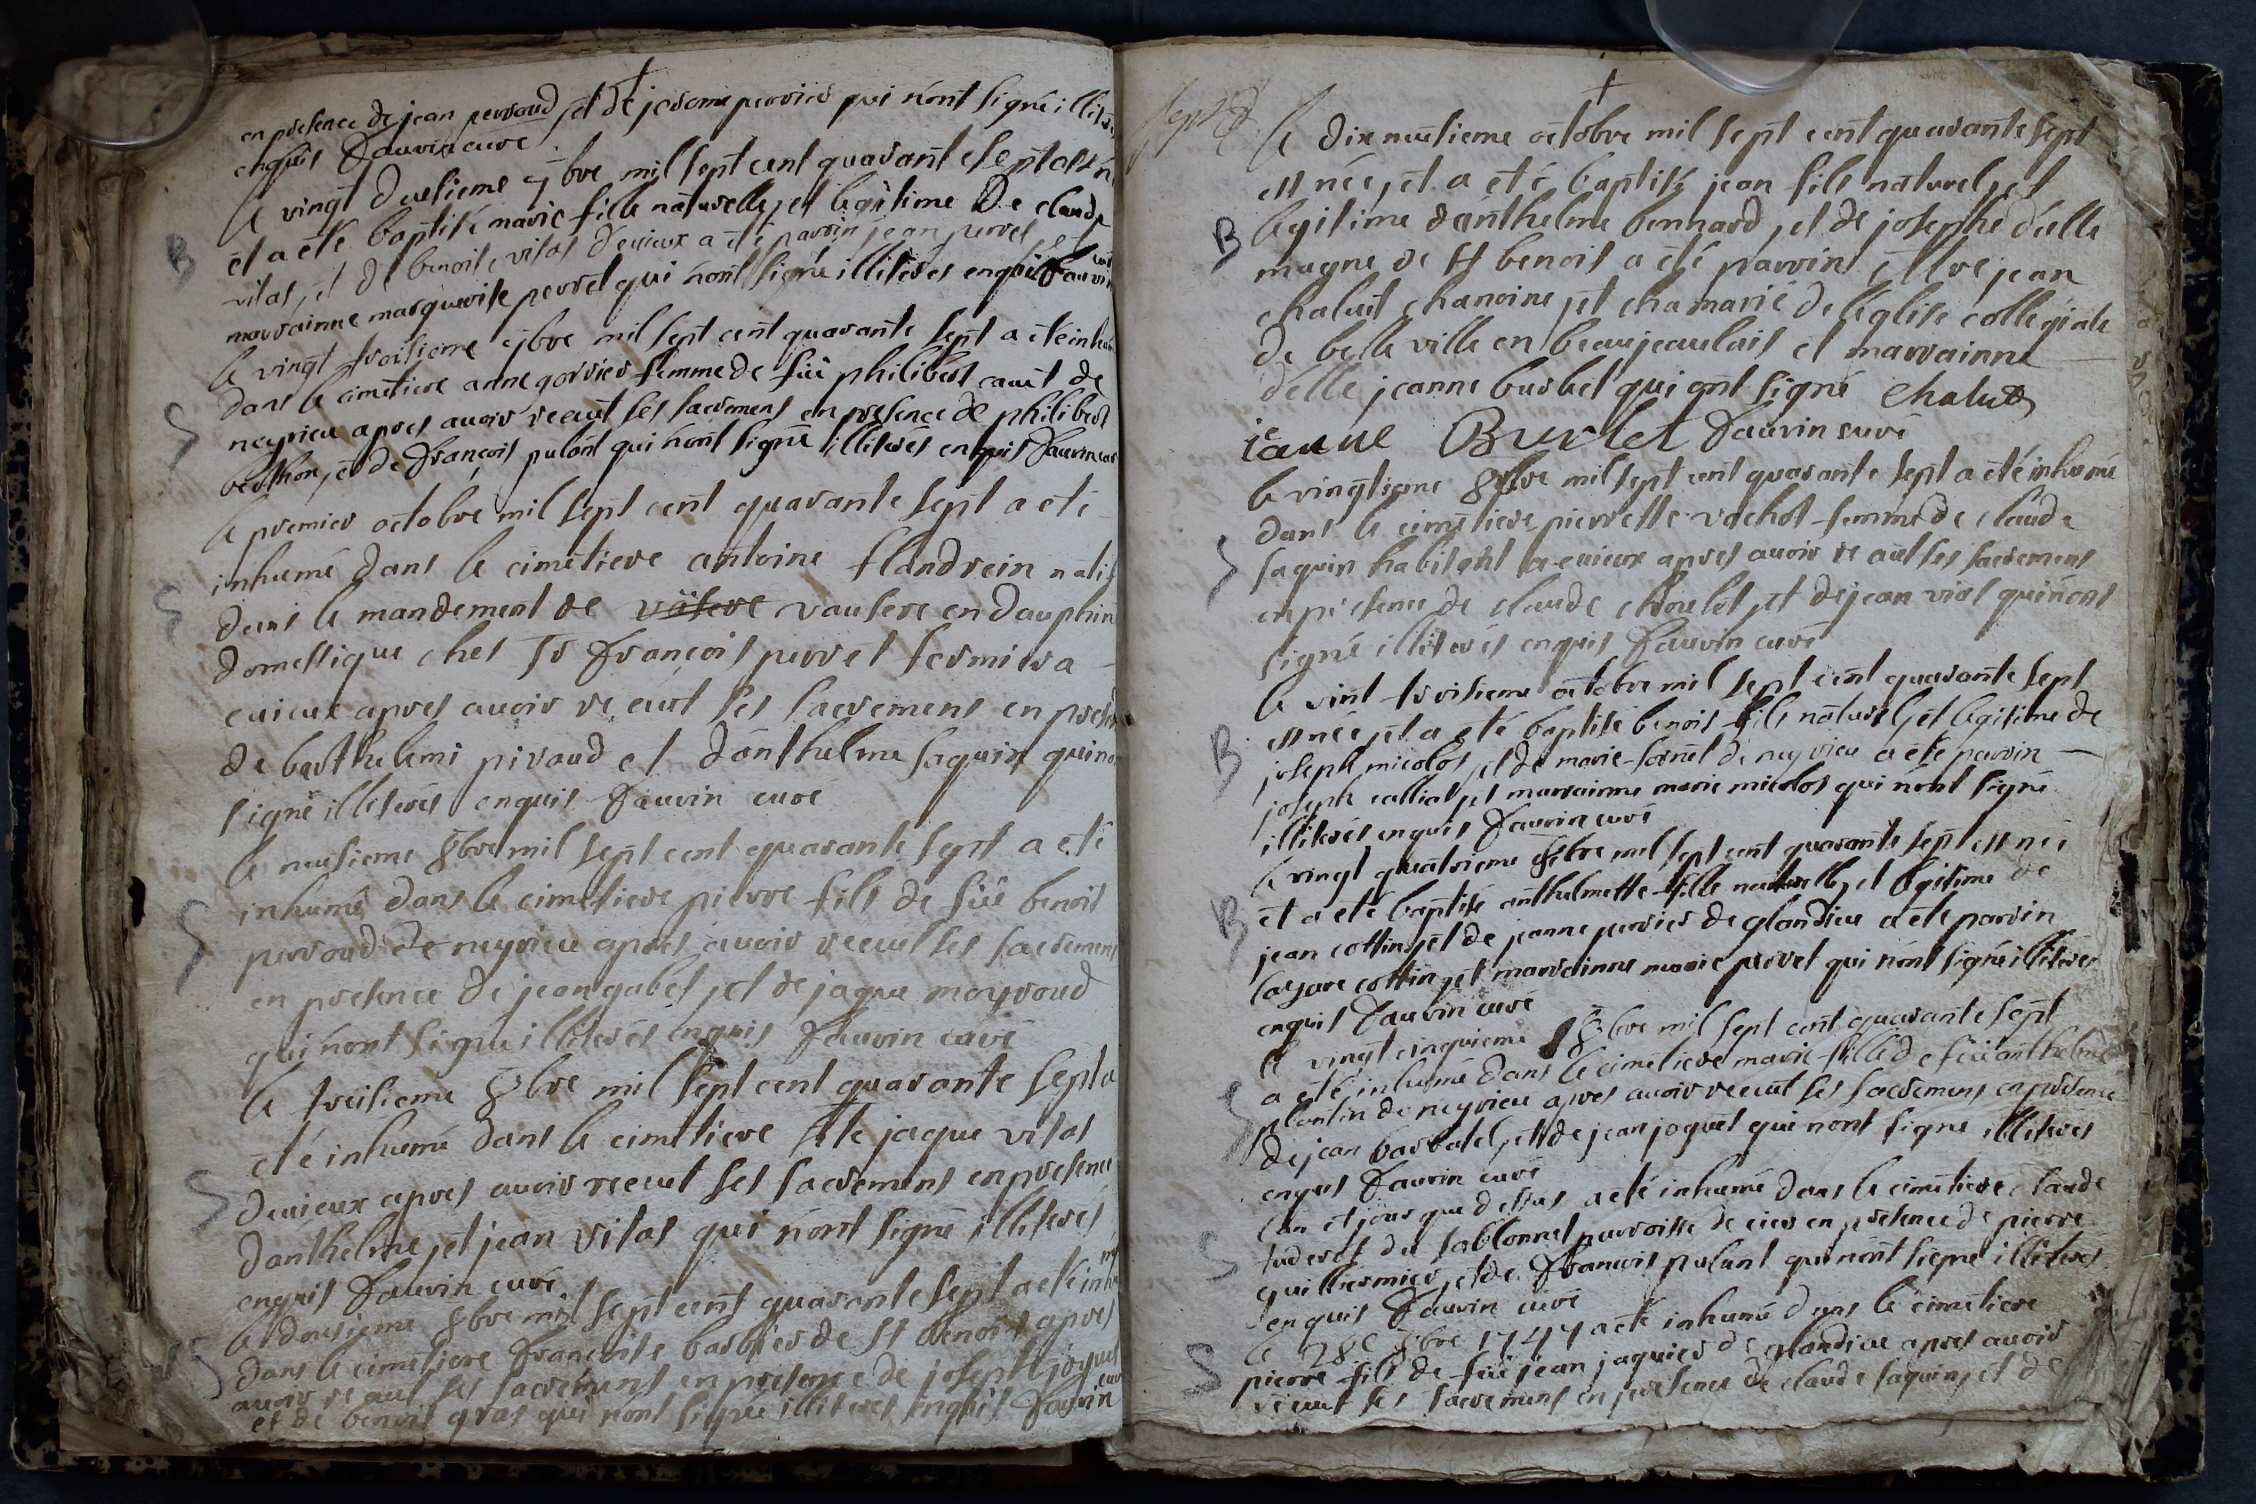 en presence de jean perroud, et de jerome perrier qui nont signé illit
enquis Faurin curé
le vingt deusieme 7bre mil sept cent quarante sept est né
et a eté baptisé marie fille naturelle, et legitime De claude
vital, et de benoite vital devieux a été parrin jean perret, et
marrainne marguerite perret qui nont signé illiterés enquis Faurin
le vingt troisieme 7bre mil sept cent quarante sept a eté inhu
dans le cimetiere anne gorrier femme de fû philibert de
neyrieu apres avoir receut ses sacremens en presence de philibert
berthon, et de françois pulant qui nont signé illiterés enquis Faurin
le premier octobre mil sept cent quarante sept a eté
inhumé dans le cimetiere antoine flandrein natif
dans le mandement de vausere en dauphin
domestique ches Sr François perret fermier a
evieux apres avoir receut ses sacremens en prese
de barthelemi piraud et danthelme saquin qui non
signé illiterés enquis Faurin curé
le neusieme 8bre mil sept cent quarante sept a eté
inhumé dans le cimetiere pierre fils de fû benoit
perroud de neyrieu apres avoir receut ses sacremens
en presence de jean gabet, et de jaque meyroud
qui nont signé illiterés enquis Faurin curé
le treisieme 8bre mil sept cent quarante sept a
eté inhumé dans le cimetiere jaque vital
devieux apres avoir receut ses sacremens en presence
danthelme, et jean vital qui nont signé illiterés
enquis Faurin curé
le dousieme 8bre mil sept cent quarante sept a eté inhu
dans le cimetiere françoise barbier de St benoit apres
avoir receut ses sacremens en presence de joseph joquet
et de benoit gras qui nont signé illiterés enquis Faurin curé
le dix neusieme octobre mil sept cent quarante sept
est née, et a eté baptisé jean fils naturel, et
B legitime danthelme bonnard, et de josephe delle
magne de St benoit a été parrin Mre jean
chalut chanoine, et chamarié de léglise collegiale
de belle ville en beaujeaulais et marrainne
delle jeanne burlet qui ont signé Chalut
ieanne Burlet Faurin curé
le vingtieme 8bre mil sept cent quarante sept a eté inhumé
dans le cimetiere pierrette rochat femme de claude
saquin habitant a evieux apres avoir receut ses sacremens
en presence de claude, et de jean vial qui nont
signé illiterés enquis Faurin curé
le vint troisieme octobre mil sept cent quarante sept
est née, et a eté baptisé benoit fils naturel, et legitime de
B joseph micolos, et de marie de neyrieu a eté parrin
joseph calliat, et marrainne marie micolos qui nont signé
illiterés enquis Faurin curé
le vingt quatrieme 8bre mil sept cent quarante sept est née
B et a eté baptisé anthelmette fille naturelle, et legitime de
jean cottin, et de jeanne perrier de glandieu a eté parrin
lasare cottin, et marrainne marie perret qui nont signé illiterés
enquis Faurin curé
le vingt cinquieme 8bre mil sept cent quarante sept
a eté inhumé dans le cimetiere marie fille de fû anthelme
plantin de neyrieu apres avoir receut ses sacremens en presence
de jean barbatel, et de jean joquet qui nont signé illiterés
enquis Faurin curé
lan et jour que dessus a eté inhumé dans le cimetiere claude
tuderat du sablonnet parroisse de en presence de pierre
guillermier, et de François pulant qui nont signé illiterés
enquis Faurin curé
le 28e 8bre 1747 a eté inhumé dans le cimetiere
pierre fils de fû jean jaquier de glandieu apres avoir
receut ses sacremens en presence de claude saquin, et de